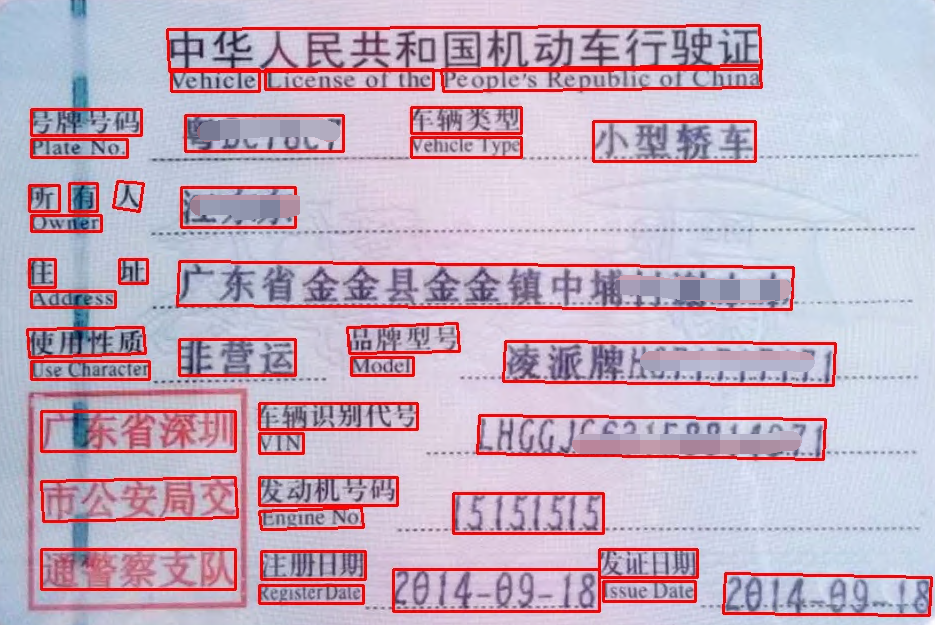 中华人民共和国机动车行驶证
Vehicle License of the People's Republic of China
号牌号码 小型轿车
Plate No. 车辆类型
Vehicle Type
所有人
Owner
住址 广东省金金县金金镇中埔
Address
使用性质 非营运 品牌型号 凌派牌
Use Character Model
广东省深圳
市公安局交
通警察支队
车辆识别代号
VIN
发动机号码 15151515
Engine No.
注册日期 2014-09-18 发证日期 2014-09-18
Register Date Issue Date